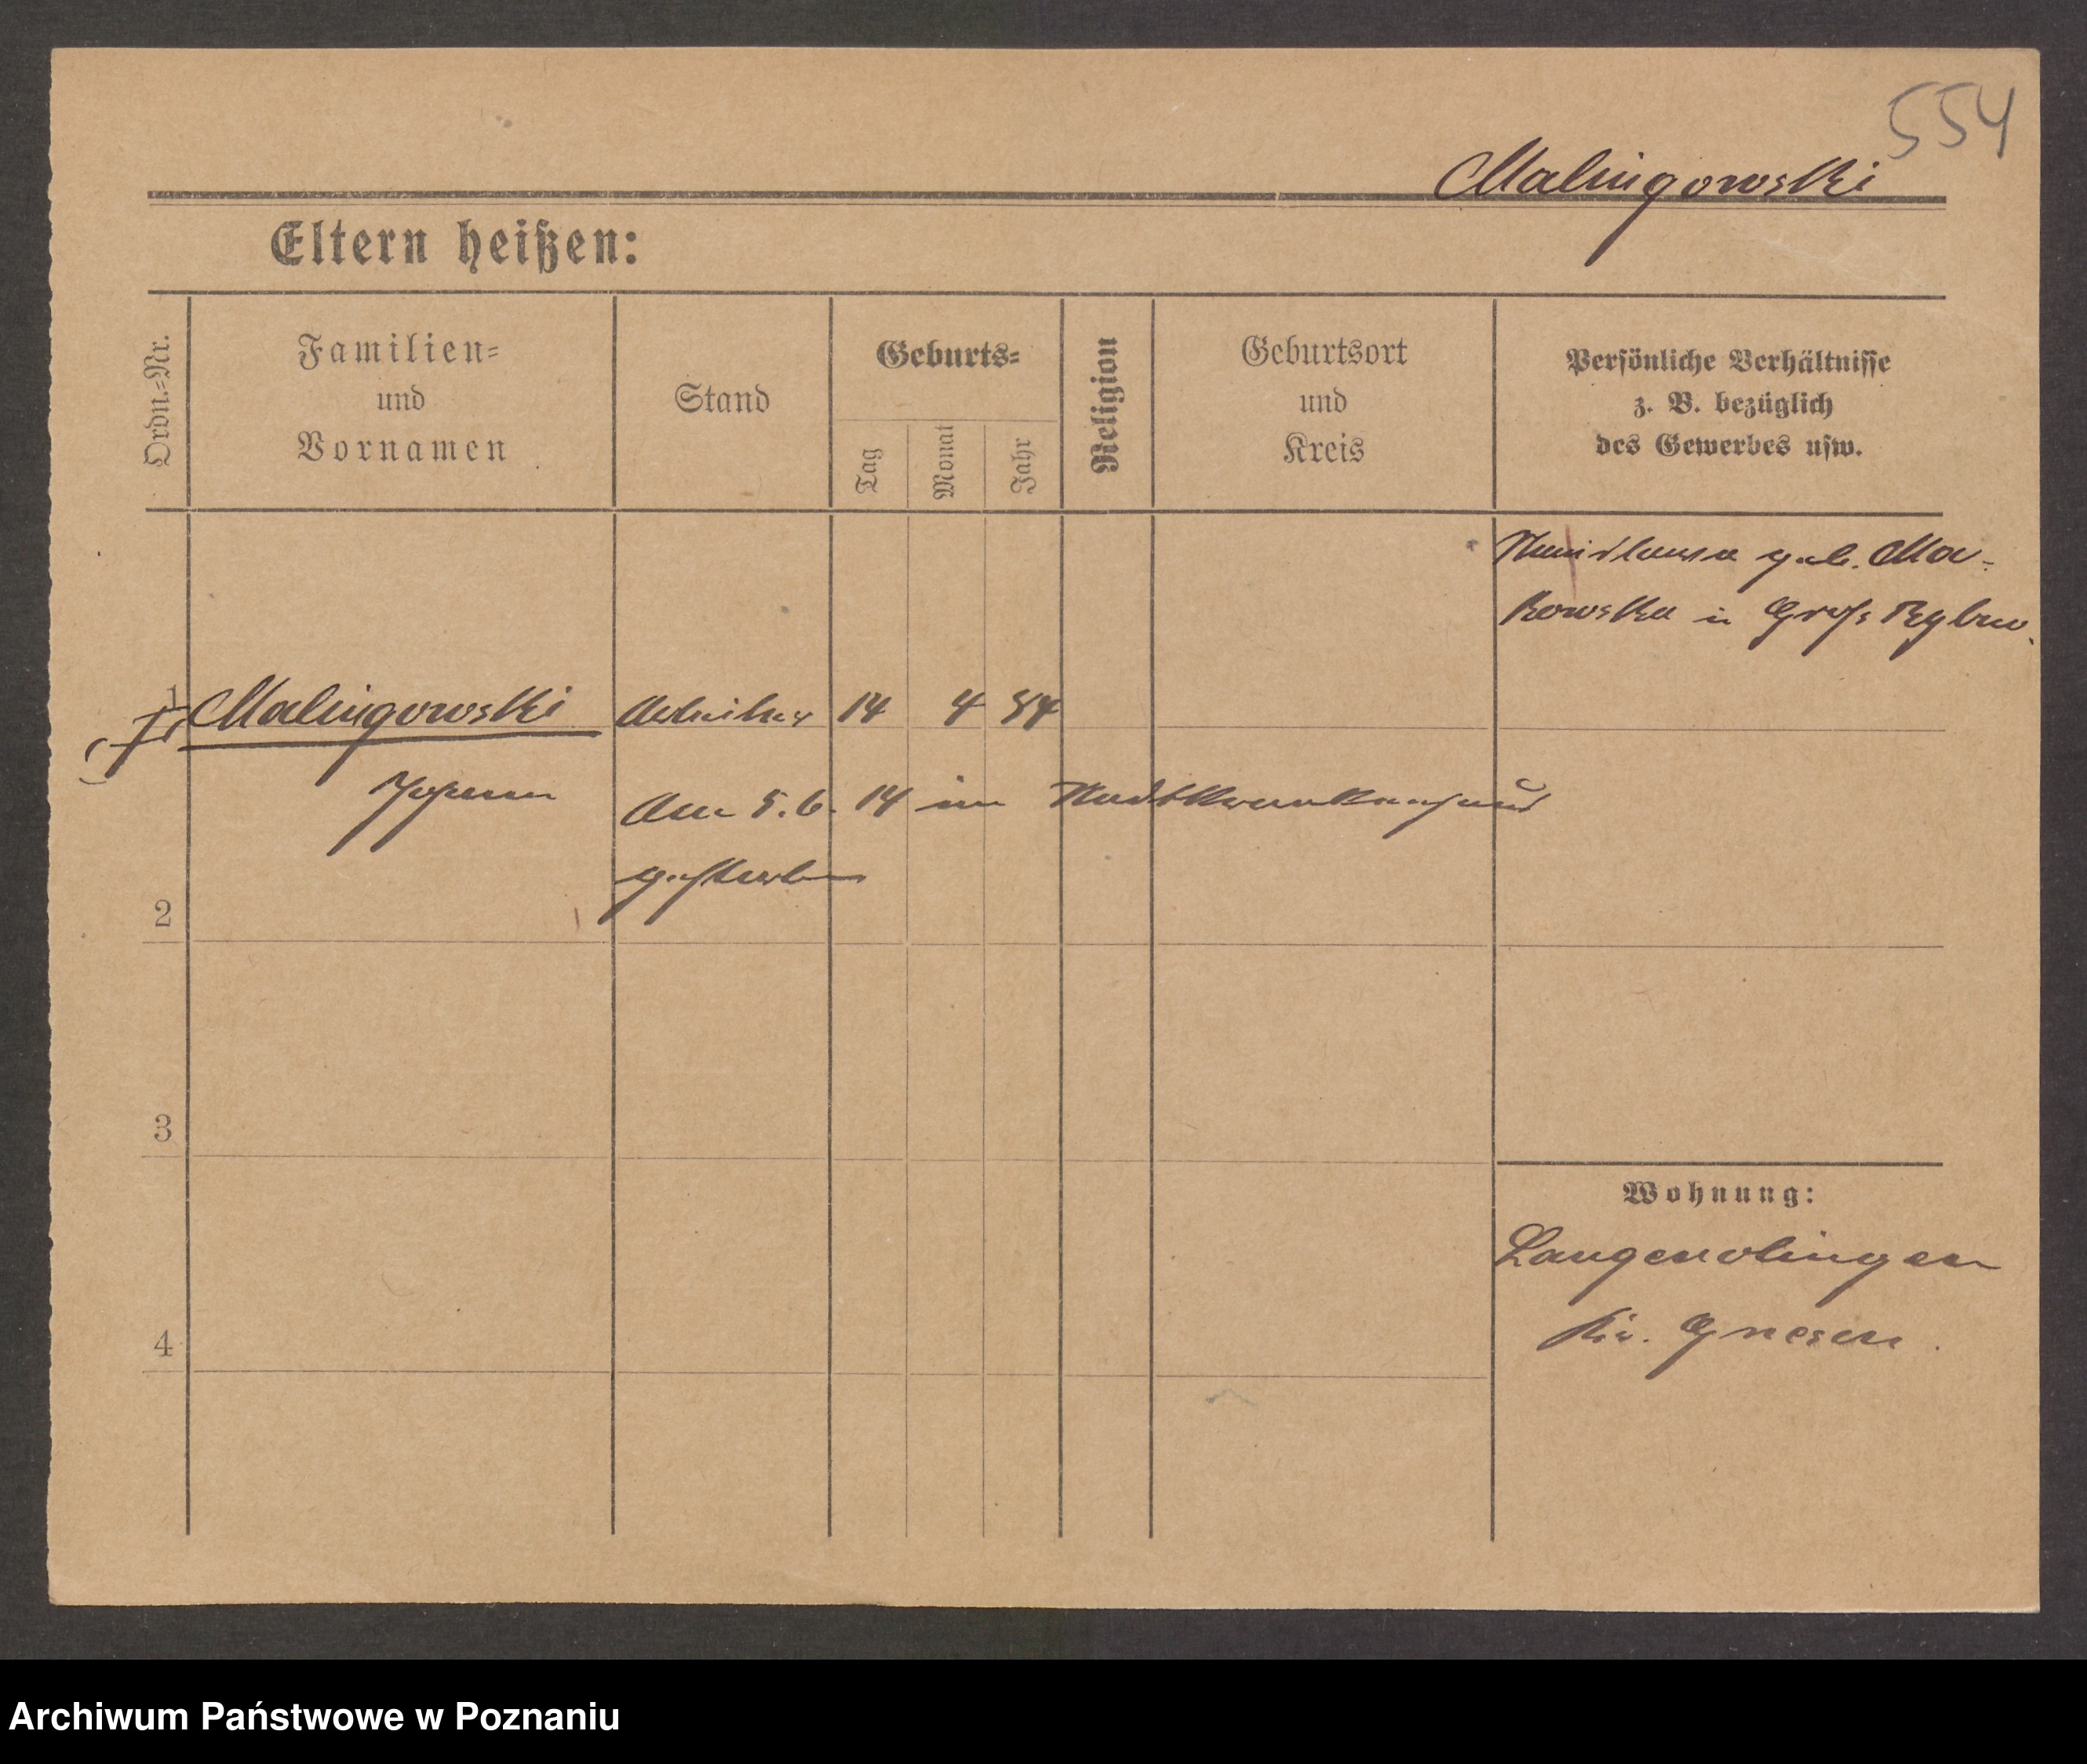 554
Malingowski
Eltern heißen:
Ordn.=Nr.
Familien=
und
Vornamen
Stand
Geburts=
Tag
Monat
Jahr
Religion
Geburtsort
und
Kreis
Persönliche Verhältnisse
z. B. bezüglich
des Gewerbes usw.
geb. Ma-
kowska in Groß Rybno
1 Malingowski Arbeiter 14 4 54
Johann Am 5.6.14 im Stadtkrankenhaus
gestorben
2
3
Wohnung:
Langenolingen
Kr. Gnesen.
4
Archiwum Państwowe w Poznaniu